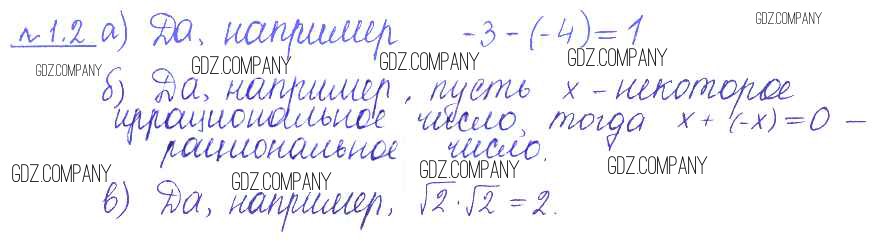 №1.2 а) Да, например -3-(-4)=1 GDZ.COMPANY
GDZ.COMPANY GDZ.COMPANY GDZ.COMPANY GDZ.COMPANY
б) Да, например, пусть x - некоторое
иррациональное число, тогда x+(-x)=0 -
рациональное число.
GDZ.COMPANY GDZ.COMPANY GDZ.COMPANY GDZ.COMPANY
в) Да, например, √2·√2=2.